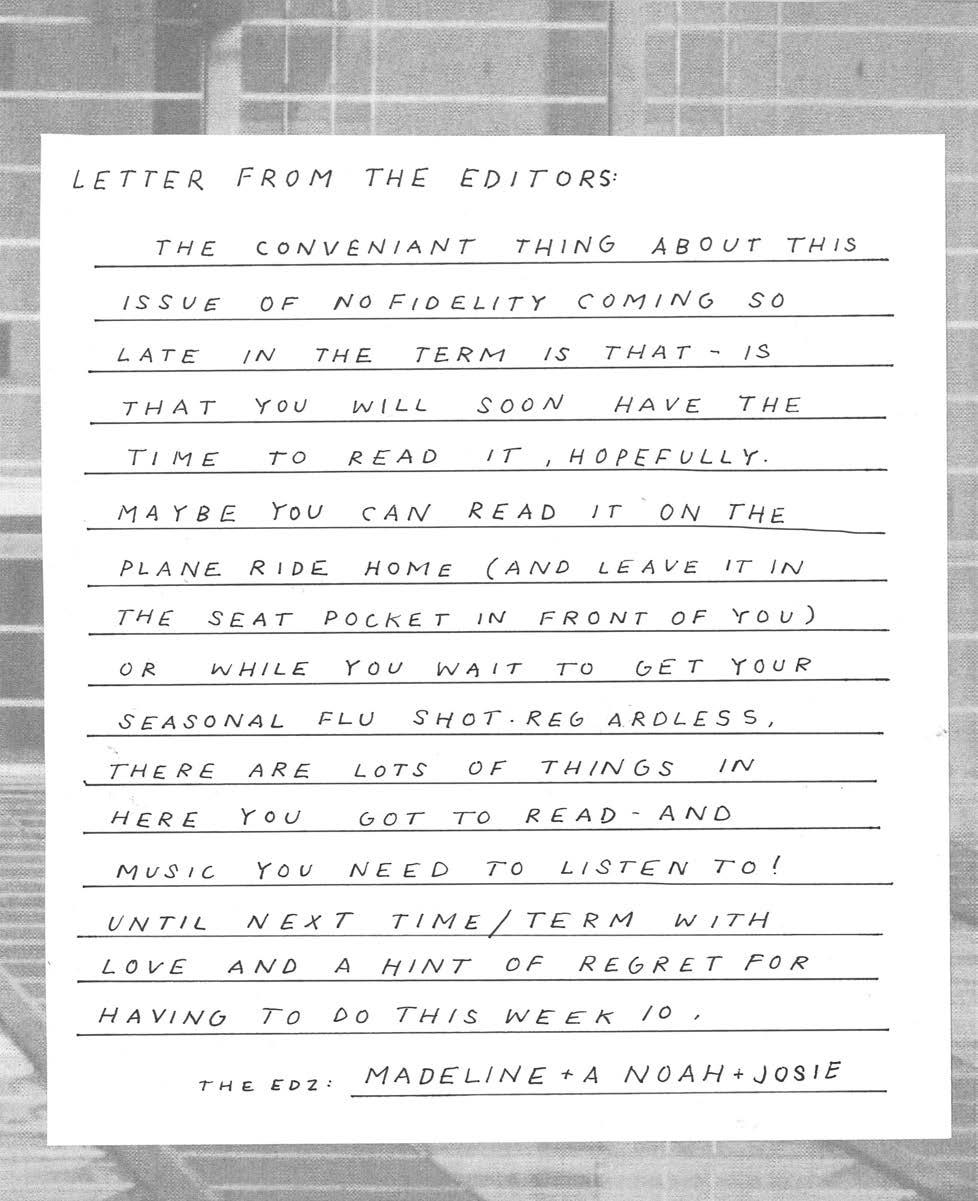 LETTER FROM THE EDITORS:
THE CONVENIANT THING ABOUT THIS
ISSUE OF NO FIDELITY COMING SO
LATE IN THE TERM IS THAT - IS
THAT YOU WILL SOON HAVE THE
TIME TO READ IT, HOPEFULLY.
MAYBE YOU CAN READ IT ON THE
PLANE RIDE HOME (AND LEAVE IT IN
THE SEAT POCKET IN FRONT OF YOU)
OR WHILE YOU WAIT TO GET YOUR
SEASONAL FLU SHOT. REG ARDLESS,
THERE ARE LOTS OF THINGS IN
HERE YOU GOT TO READ - AND
MUSIC YOU NEED TO LISTEN TO!
UNTIL NEXT TIME/TERM WITH
LOVE AND A HINT OF REGRET FOR
HAVING TO DO THIS WEEK 10,
THE EDZ: MADELINE + A NOAH + JOSIE